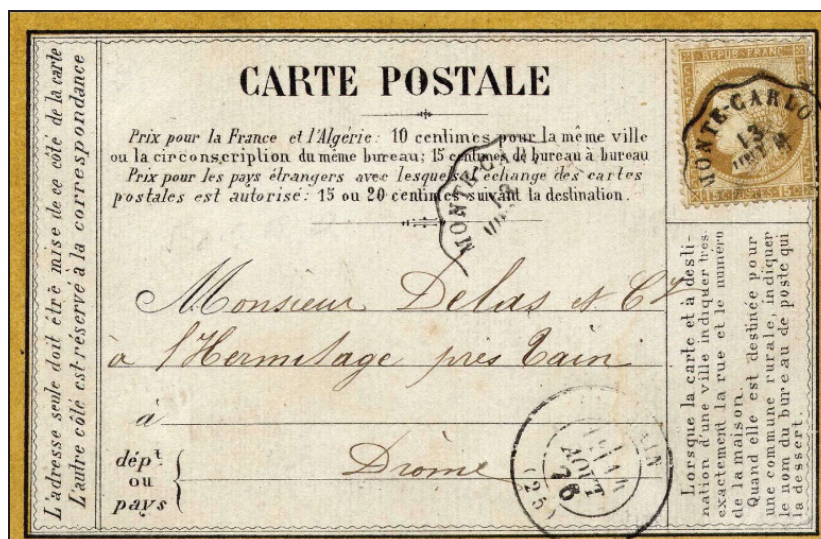 L'adresse seule doit être mise de ce côté de la carte
L'autre côté est réservé à la correspondance
CARTE POSTALE
Prix pour la France et l'Algérie: 10 centimes pour la même ville
ou la circonscription du même bureau; 15 centimes de bureau à bureau
Prix pour les pays étrangers avec lesquels l'échange des cartes
postales est autorisé: 15 ou 20 centimes suivant la destination.
REPUB FRANC
MONTE-CARLO
13
15 CENTES 15 C
MONTE-C
Monsieur Delas et Cie
à l'Hermitage près Tain
à
Drôme
dépt.
ou
pays
AIN
AOUT
76
(25)
Lorsque la carte est à desti-
nation d'une ville indiquer très
exactement la rue et le numéro
de la maison.
Quand elle est destinée pour
une commune rurale, indiquer
le nom du bureau de poste qui
la dessert.